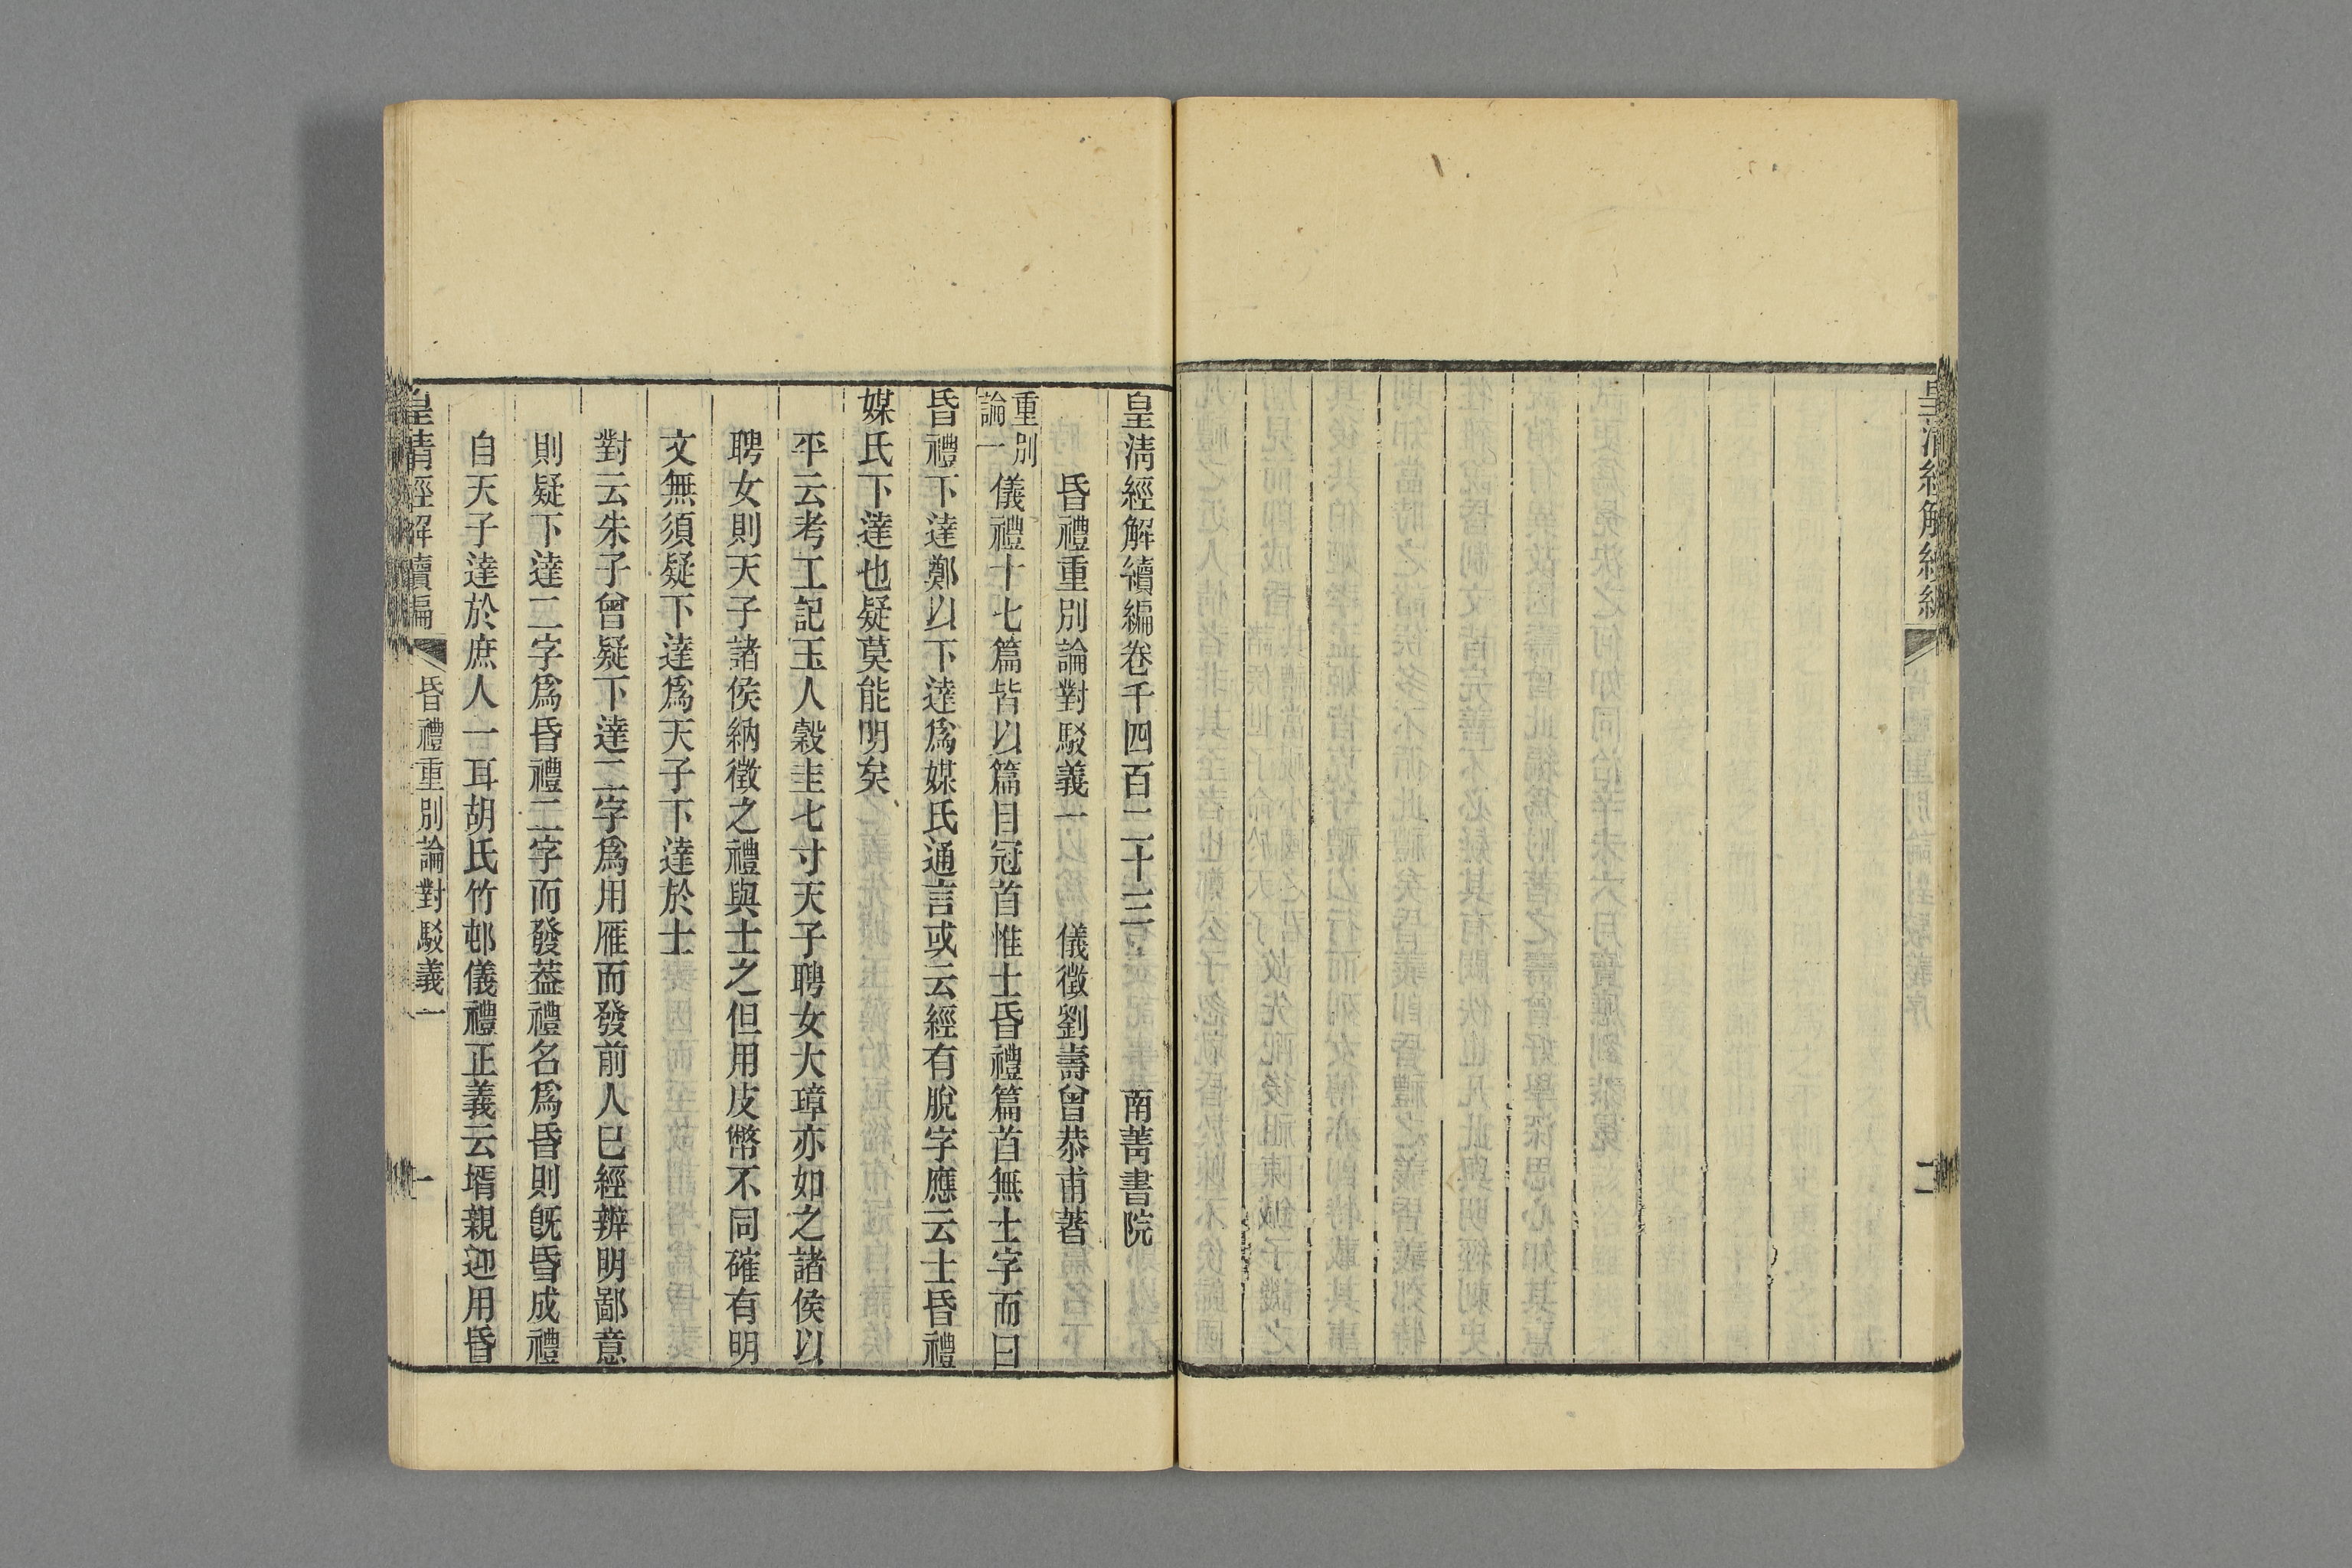 皇清經解續編
二
皇清經解續編卷千四百二十三 南菁書院
昏禮重別論對駁義一 儀徵劉壽曾恭甫著
重別論一 儀禮十七篇皆以篇目冠首惟士昏禮篇首無士字而曰
昏禮下達鄭以下達爲媒氏通言或云經有脫字應云士昏禮
媒氏下達也疑莫能明矣
平云考工記玉人穀圭七寸天子聘女大璋亦如之諸侯以
聘女則天子諸侯納徵之禮與士之但用皮幣不同確有明
文無須疑下達爲天子下達於士
對云朱子曾疑下達二字爲用雁而發前人已經辨明鄙意
則疑下達二字爲昏禮二字而發葢禮名爲昏則旣昏成禮
自天子達於庶人一耳胡氏竹邨儀禮正義云壻親迎用昏
皇清經解續編 昏禮重別論對駁義一 一